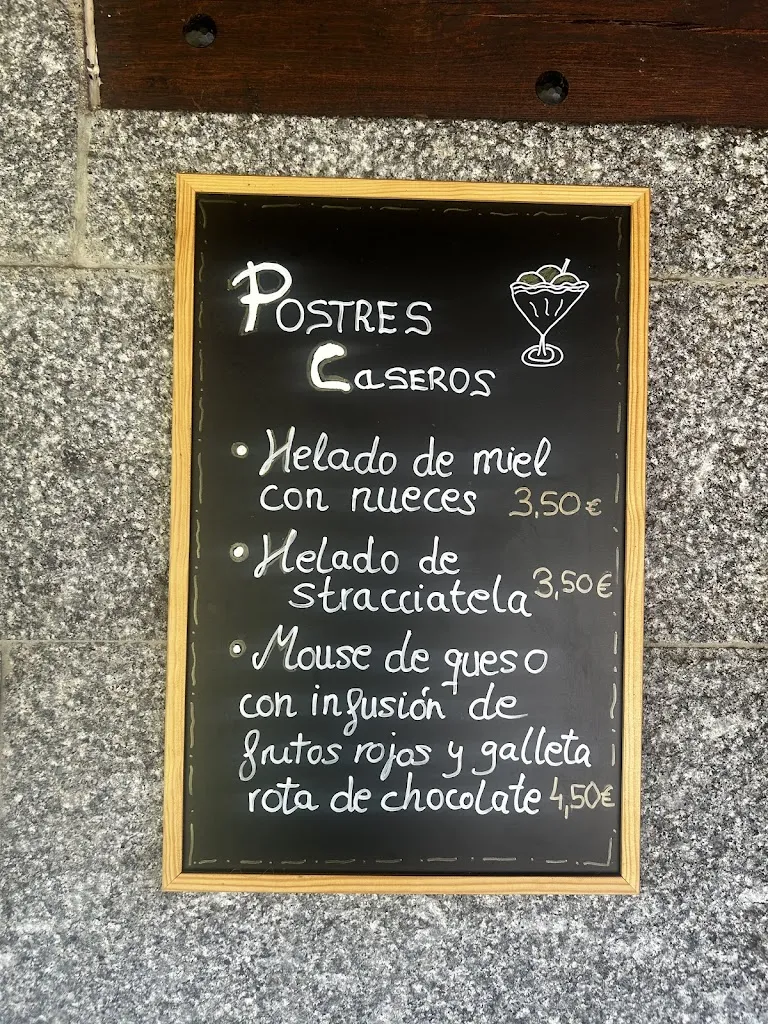 POSTRES
CASEROS
• Helado de miel
con nueces 3,50€
• Helado de
stracciatela 3,50€
• Mouse de queso
con infusión de
frutos rojos y galleta
rota de chocolate 4,50€